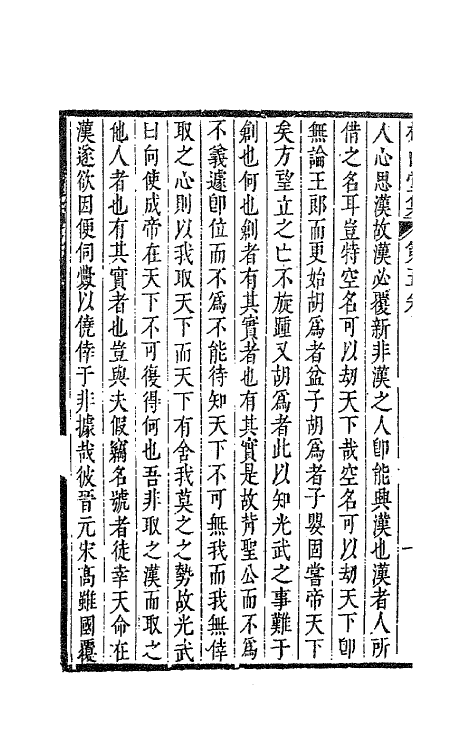 人心思漢故漢必覆新非漢之人卽能興漢也漢者人所
借之名耳豈特空名可以刧天下哉空名可以刧天下卽
無論王郎而更始胡爲者盆子胡爲者子嬰固嘗帝天下
矣方望立之亡不旋踵又胡爲者此以知光武之事難于
創也何也創者有其實者也有其實是故背聖公而不爲
不義遽卽位而不爲不能待知天下不可無我而我無倖
取之心則以我取天下而天下有舍我莫之之勢故光武
曰向使成帝在天下不可復得何也吾非取之漢而取之
他人者也有其實者也豈與夫假竊名號者徒幸天命在
漢遂欲因便伺釁以僥倖于非據哉彼晉元宋高雖國覆